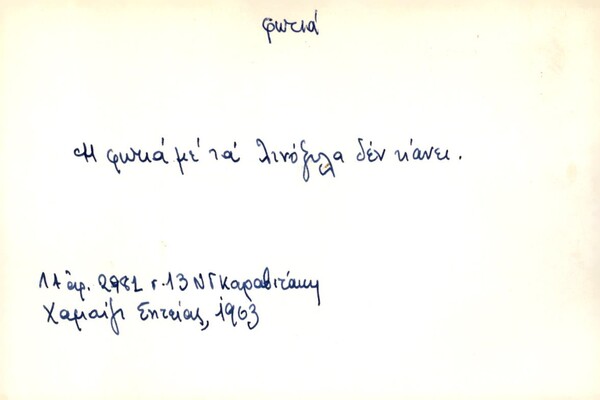 φωτιά
Ἡ φωτιά μέ τά λινόξυλα δέν κάνει.
ΛΑ ἀρ. 2981 σ. 13 Ν Γ Καραβιτάκη
Χαμαίζι Σητείας, 1963